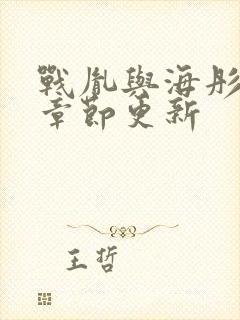 戰胤與海彤
章節更新
王哲